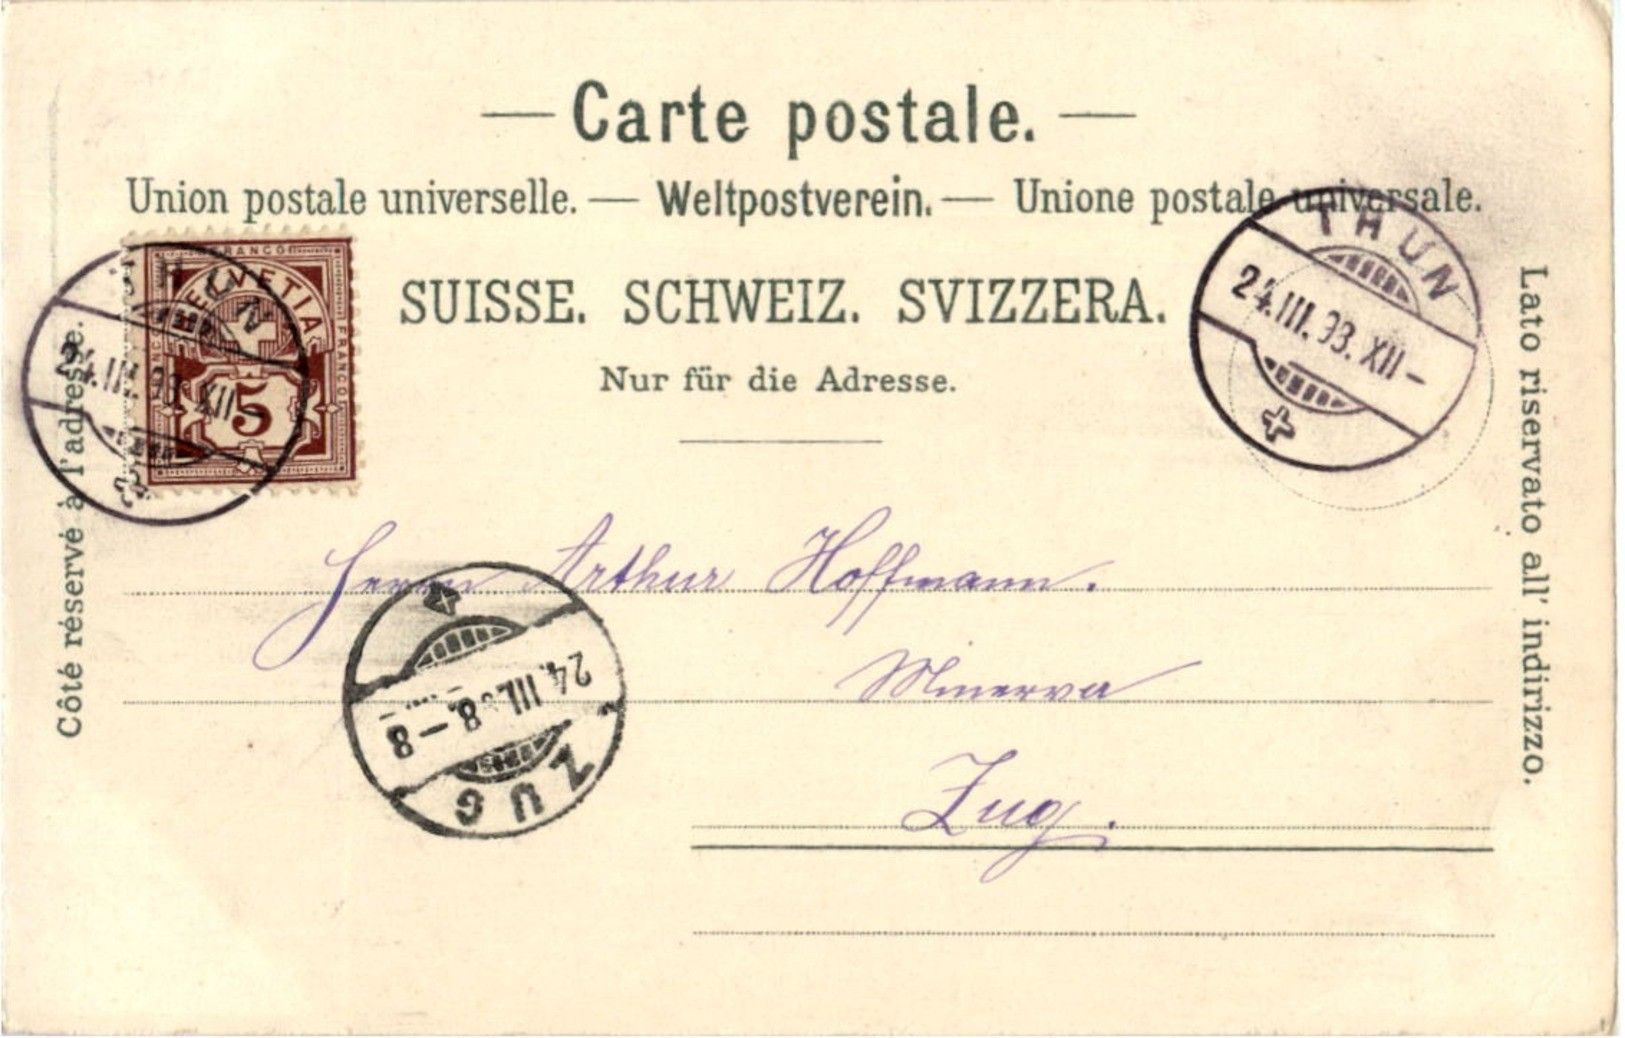 Carte postale.
Union postale universelle. — Weltpostverein. — Unione postale universale.
SUISSE. SCHWEIZ. SVIZZERA.
Nur für die Adresse.
Côté réservé à l'adresse.
Lato riservato all' indirizzo.
FRANCO
HELVETIA
FRANCO
5
THUN
24.III.93.XII–
THUN
24.III.93.XII–
Herrn Arthur Hoffmann.
Minerva
Zug.
ZUG
24.III.
8.–8